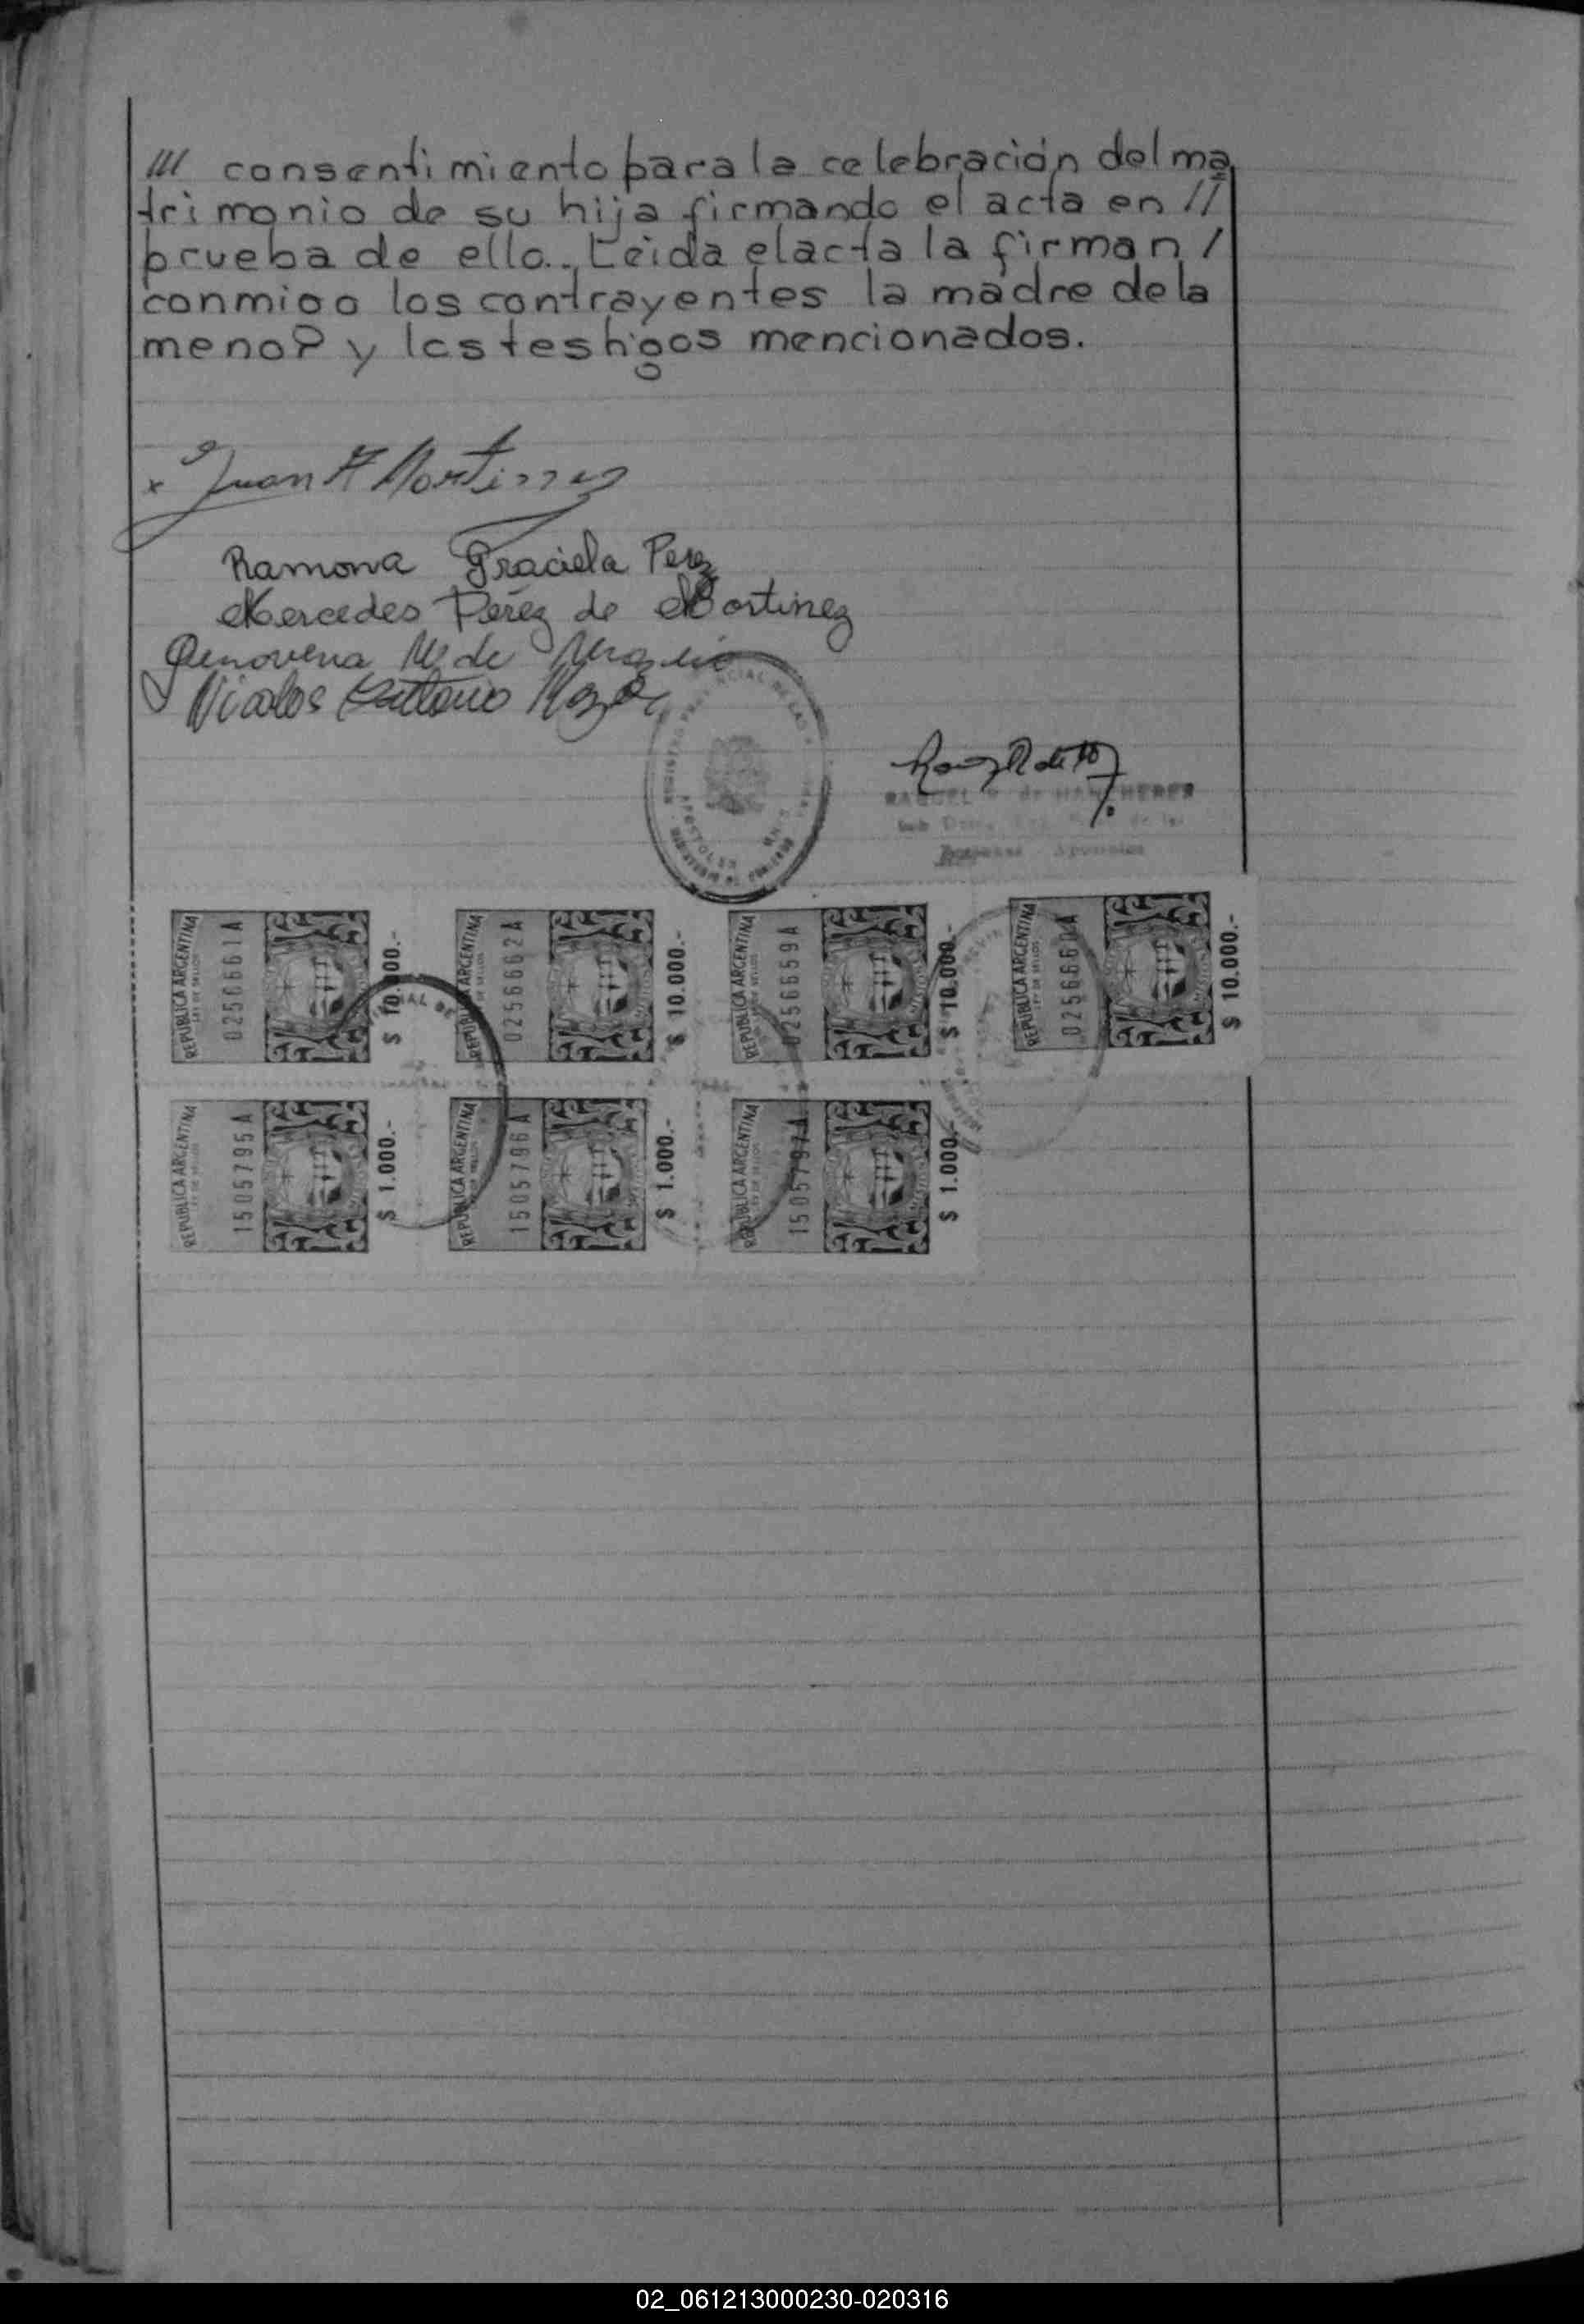 /// consentimiento para la celebración del ma
trimonio de su hija firmando el acta en //
prueba de ello. Leida el acta la firman /
conmigo los contrayentes la madre de la
menor y los testigos mencionados.
x Juan A Martinez
Ramona Graciela Perez
Mercedes Pérez de Martinez
Genoveva de
Nicolas
RAQUEL de
Apostoles
APOSTOLES
REPUBLICA ARGENTINA 0256661A $ 10.000.-
REPUBLICA ARGENTINA 0256662A $ 10.000.-
REPUBLICA ARGENTINA 0256659A $ 10.000.-
REPUBLICA ARGENTINA 0256660A $ 10.000.-
REPUBLICA ARGENTINA 1505795A $ 1.000.-
REPUBLICA ARGENTINA 1505796A $ 1.000.-
REPUBLICA ARGENTINA 1505797A $ 1.000.-
02_061213000230-020316